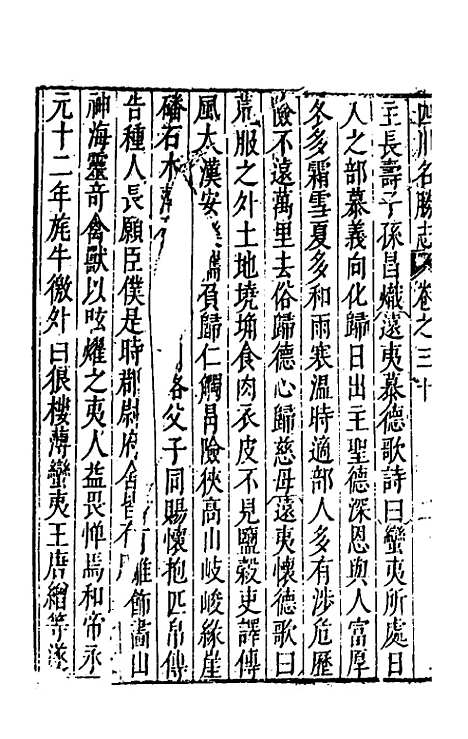 四川名勝志 卷之三十
主長壽子孫昌熾遠夷慕德歌詩曰蠻夷所處日
人之部慕義向化歸日出主聖德深恩與人富厚
冬多霜雪夏多和雨寒溫時適部人多有涉危歷
險不遠萬里去俗歸德心歸慈母遠夷懷德歌曰
荒服之外土地墝埆食肉衣皮不見鹽穀吏譯傳
風大漢安 攜負歸仁觸冐險俠高山岐峻緣崖
磻石木 各父子同賜懷抱匹帛傳
告種人長願臣僕是時郡尉府舍皆有 雕飾畵山
神海靈奇禽獸以眩燿之夷人益畏憚焉和帝永
元十二年旄牛徼外曰狼樓薄蠻夷王唐繒等遂